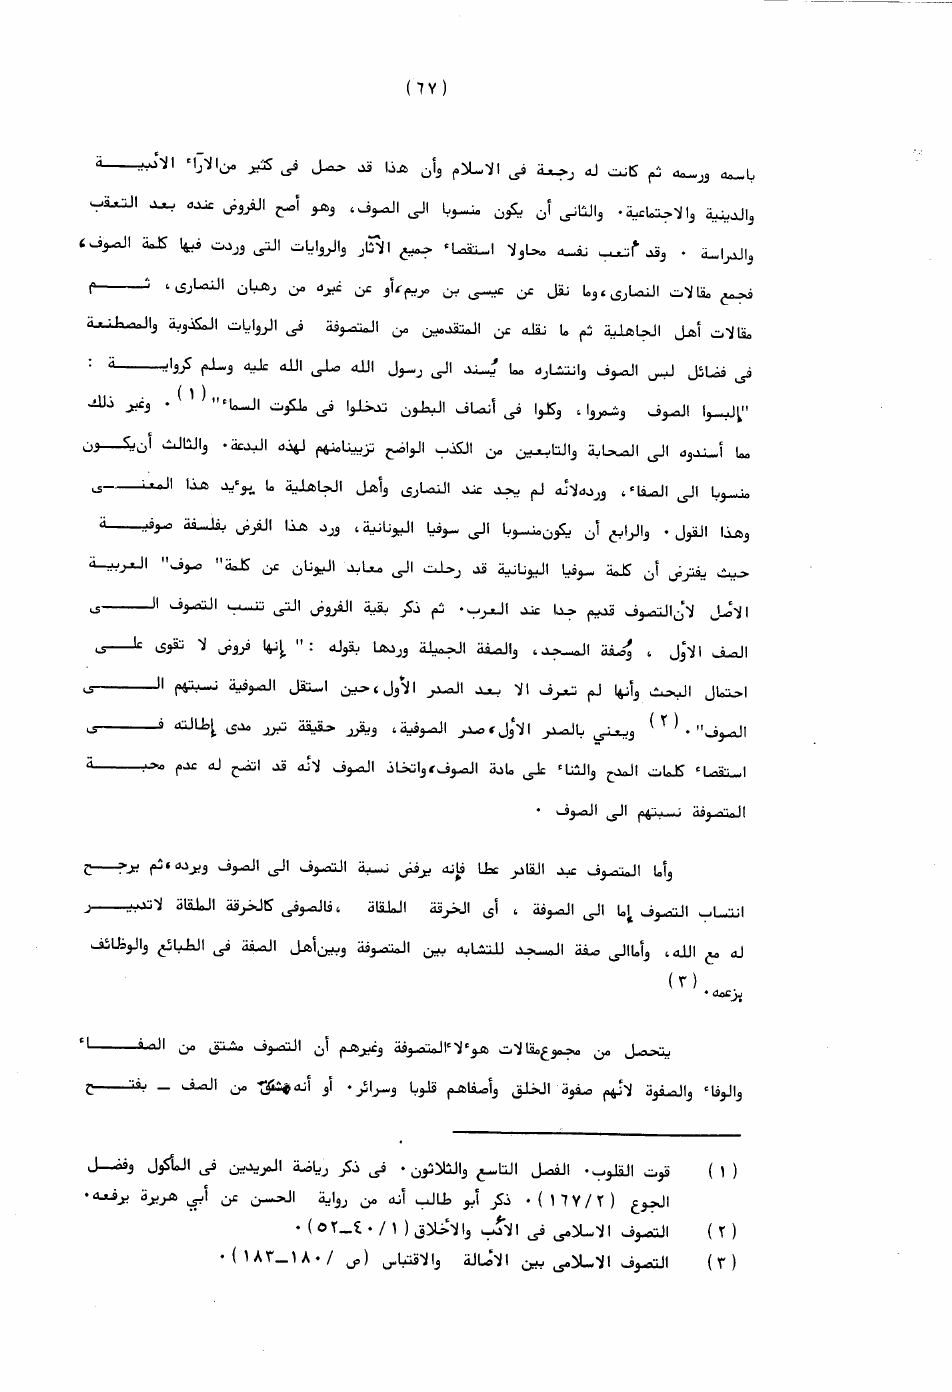 (٦٧)
باسمه ورسمه ثم كانت له رجعة فى الاسلام وأن هذا قد حصل فى كثير من الآراء الأدبية
والدينية والاجتماعية. والثانى أن يكون منسوبا الى الصوف، وهو أصح الفروض عنده بعد التعقب
والدراسة . وقد أتعب نفسه محاولا استقصاء جميع الآثار والروايات التى وردت فيها كلمة الصوف،
فجمع مقالات النصارى، وما نقل عن عيسى بن مريم، أو عن غيره من رهبان النصارى، ثم
مقالات أهل الجاهلية ثم ما نقله عن المتقدمين من المتصوفة فى الروايات المكذوبة والمصطنعة
فى فضائل لبس الصوف وانتشاره مما يُسند الى رسول الله صلى الله عليه وسلم كرواية :
"إلبسوا الصوف وشمروا، وكلوا فى أنصاف البطون تدخلوا فى ملكوت السماء"(١). وغير ذلك
مما أسندوه الى الصحابة والتابعين من الكذب الواضح تزيينا منهم لهذه البدعة. والثالث أن يكون
منسوبا الى الصفاء، ورده لأنه لم يجد عند النصارى وأهل الجاهلية ما يوءيد هذا المعنى
وهذا القول. والرابع أن يكون منسوبا الى سوفيا اليونانية، ورد هذا الفرض بفلسفة صوفية
حيث يفترض أن كلمة سوفيا اليونانية قد رحلت الى معابد اليونان عن كلمة" صوف" العربية
الأصل لأن التصوف قديم جدا عند العرب. ثم ذكر بقية الفروض التى تنسب التصوف الى
الصف الأول ، وصُفة المسجد، والصفة الجميلة وردها بقوله :" إنها فروض لا تقوى على
احتمال البحث وأنها لم تعرف الا بعد الصدر الأول، حين استقل الصوفية نسبتهم الى
الصوف".(٢) ويعني بالصدر الأول، صدر الصوفية، ويقرر حقيقة تبرر مدى إطالته فى
استقصاء كلمات المدح والثناء على مادة الصوف، واتخاذ الصوف لأنه قد اتضح له عدم محبة
المتصوفة نسبتهم الى الصوف .
وأما المتصوف عبد القادر عطا فإنه يرفض نسبة التصوف الى الصوف ويرده، ثم يرجح
انتساب التصوف إما الى الصوفة ، أى الخرقة الملقاة ، فالصوفى كالخرقة الملقاة لاتدبير
له مع الله، وأما الى صفة المسجد للتشابه بين المتصوفة وبين أهل الصفة فى الطبائع والوظائف
بزعمه.(٣)
يتحصل من مجموع مقالات هوءلاء المتصوفة وغيرهم أن التصوف مشتق من الصفاء
والوفاء والصفوة لأنهم صفوة الخلق وأصفاهم قلوبا وسرائر. أو أنه مشتق من الصف ــ بفتح
(١) قوت القلوب. الفصل التاسع والثلاثون. فى ذكر رياضة المريدين فى المأكول وفضل
الجوع (١٦٧/٢). ذكر أبو طالب أنه من رواية الحسن عن أبي هريرة يرفعه.
(٢) التصوف الاسلامى فى الأدب والأخلاق (١/ ٤٠ــ٥٢).
(٣) التصوف الاسلامى بين الأصالة والاقتباس (ص /١٨٠ــ١٨٣).